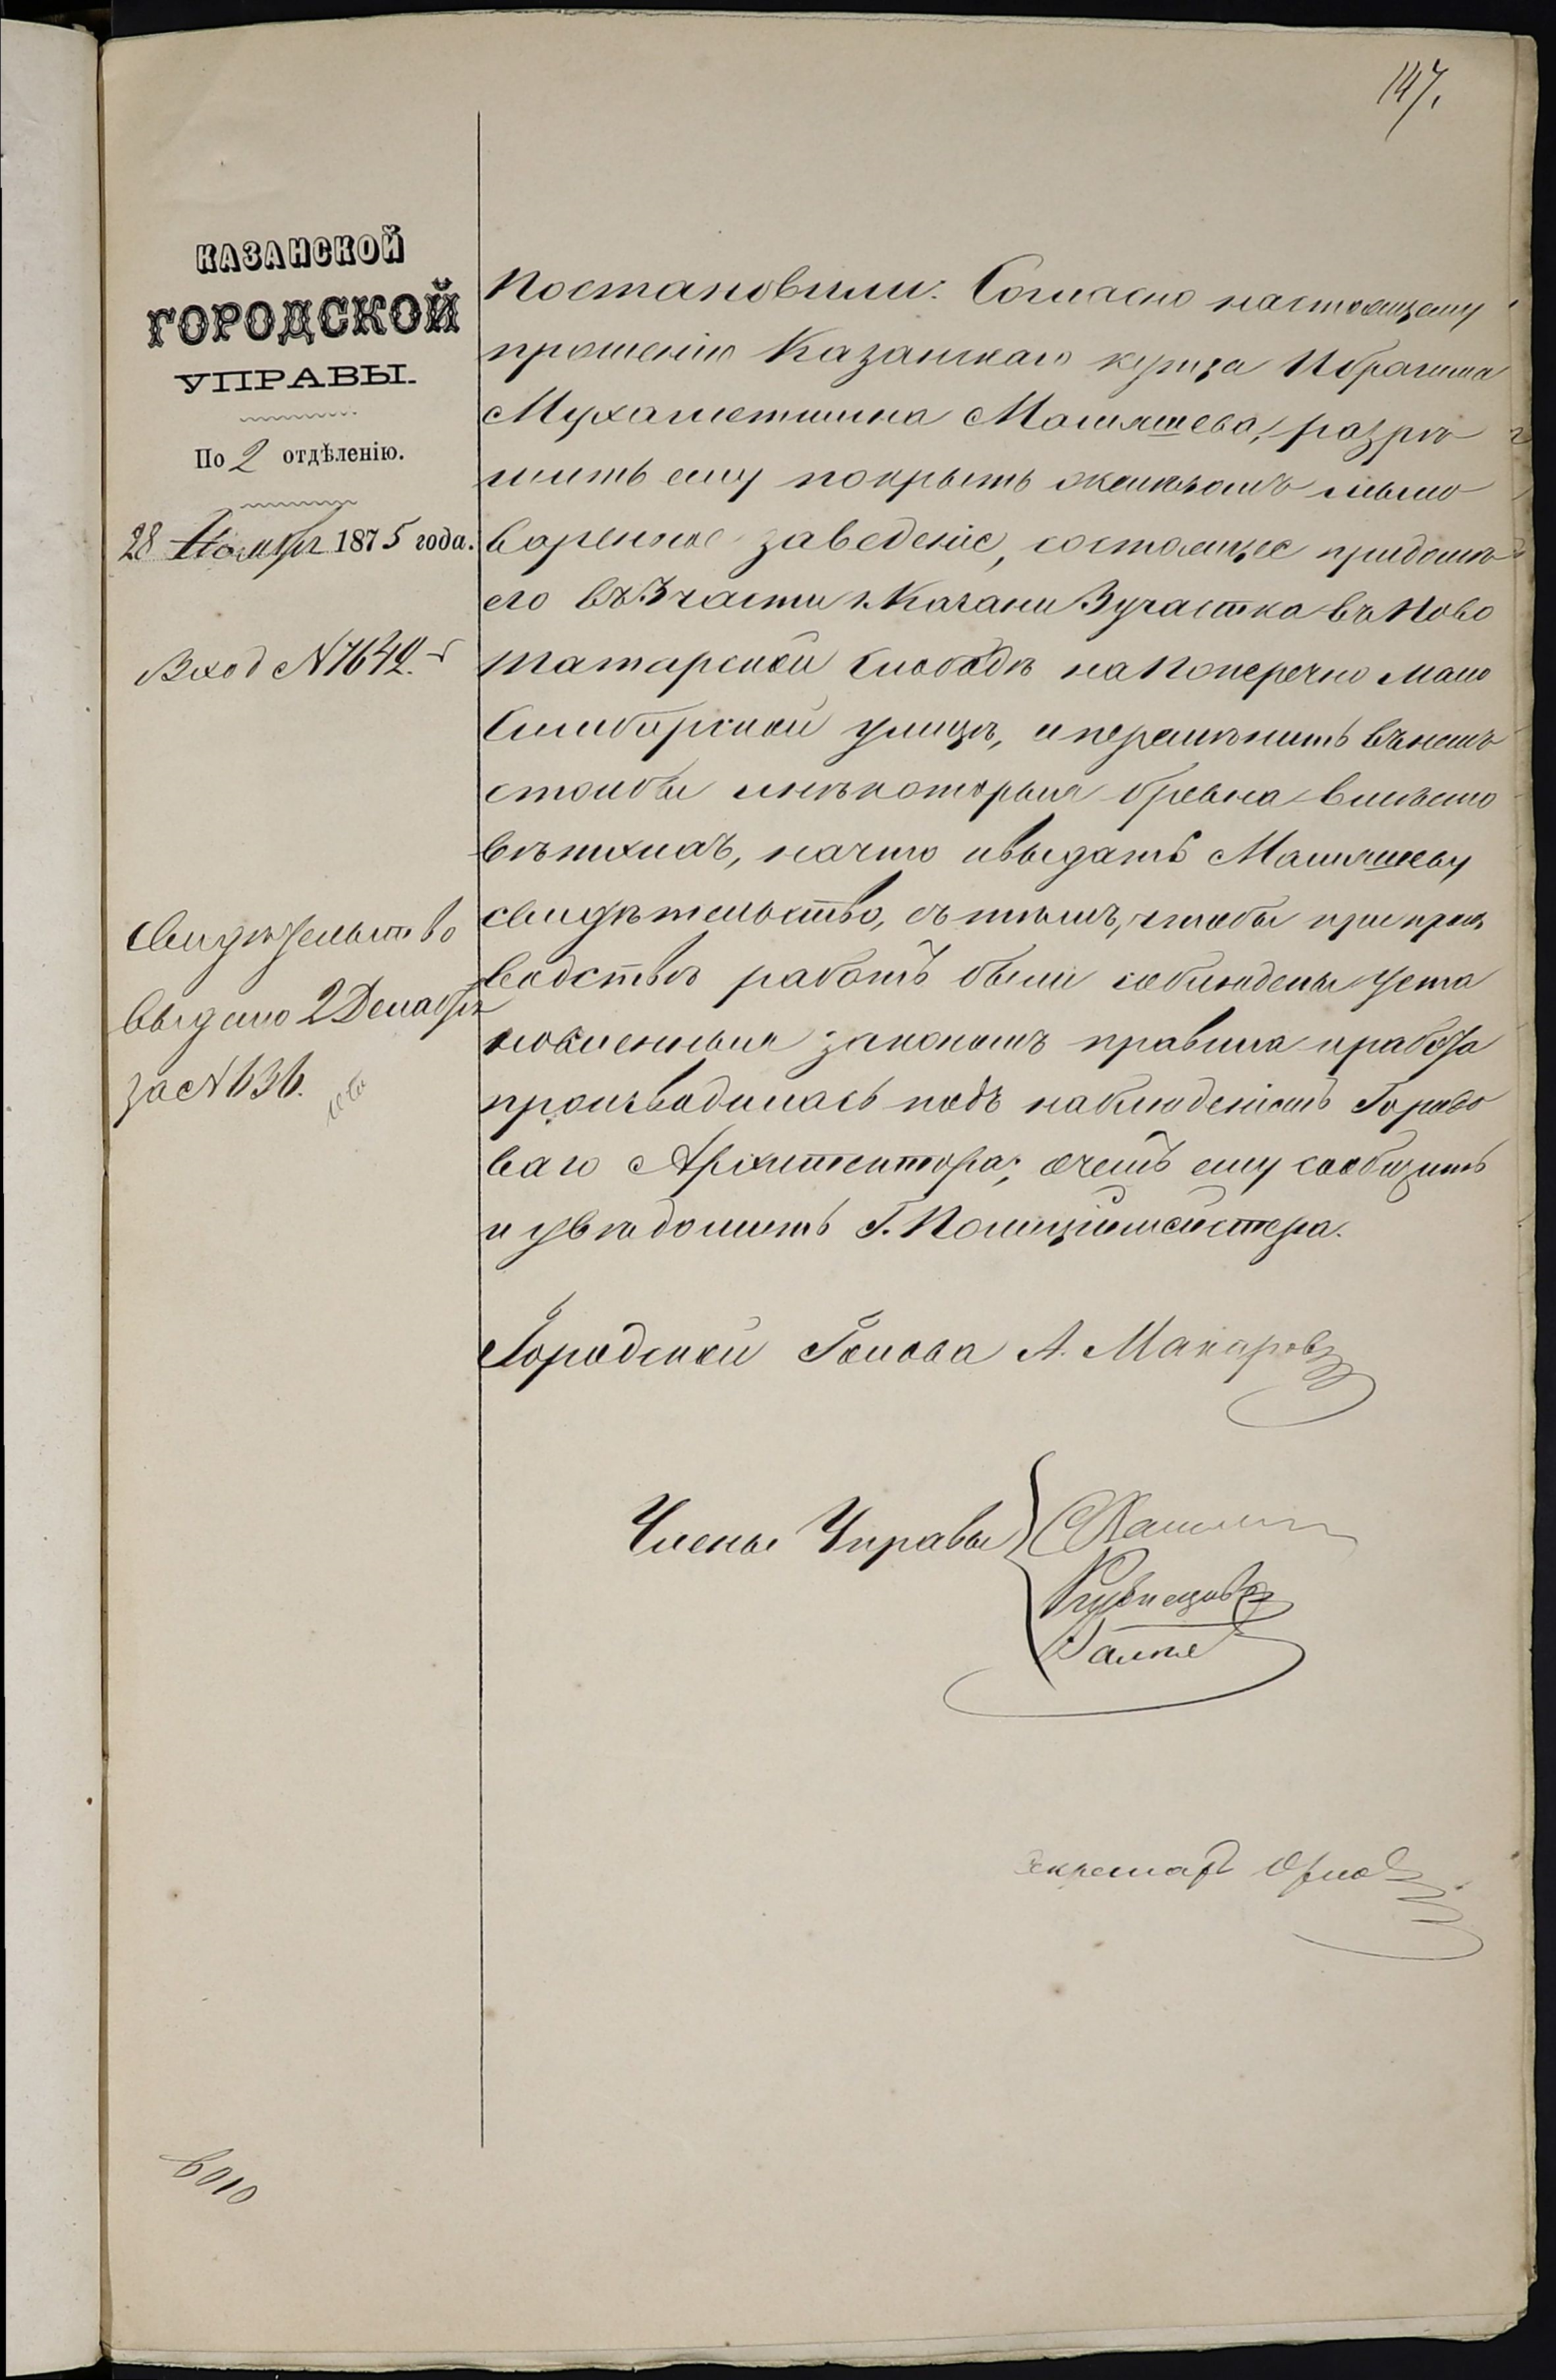 147.
КАЗАНСКОЙ
ГОРОДСКОЙ
УПРАВЫ.
По 2 отдѣленію.
28 Ноября 1875 года.
Вход № 7642.
Свидѣтельство
выдано 2 Декабря
за № 636.
6010
Постановили: Согласно настоящему
прошенію Казанскаго купца Ибрагима
Мухаметшина Мамяшева, разрѣ
шить ему покрыть желѣзомъ мыло
варенное заведеніе, состоящее при домѣ
его въ 3 части г. Казани 3 участка въ Ново
татарской Слободѣ на Поперечно мало
Симбирской улицѣ, и перемѣнить въ немъ
столбы и нѣкоторыя бревна вмѣсто
вѣтхихъ, на что и выдать Мамяшеву
свидѣтельство, съ тѣмъ, чтобы при произ
водствѣ работъ были соблюдены уста
новленныя закономъ правила и работа
производилась подъ наблюденіемъ Городо
ваго Архитектора, о чемъ ему сообщить
и увѣдомить Г. Полиціймейстера.
Городской Голова А. Макаровъ
Члены Управы
Кузнецовъ
Секретарь Орловъ